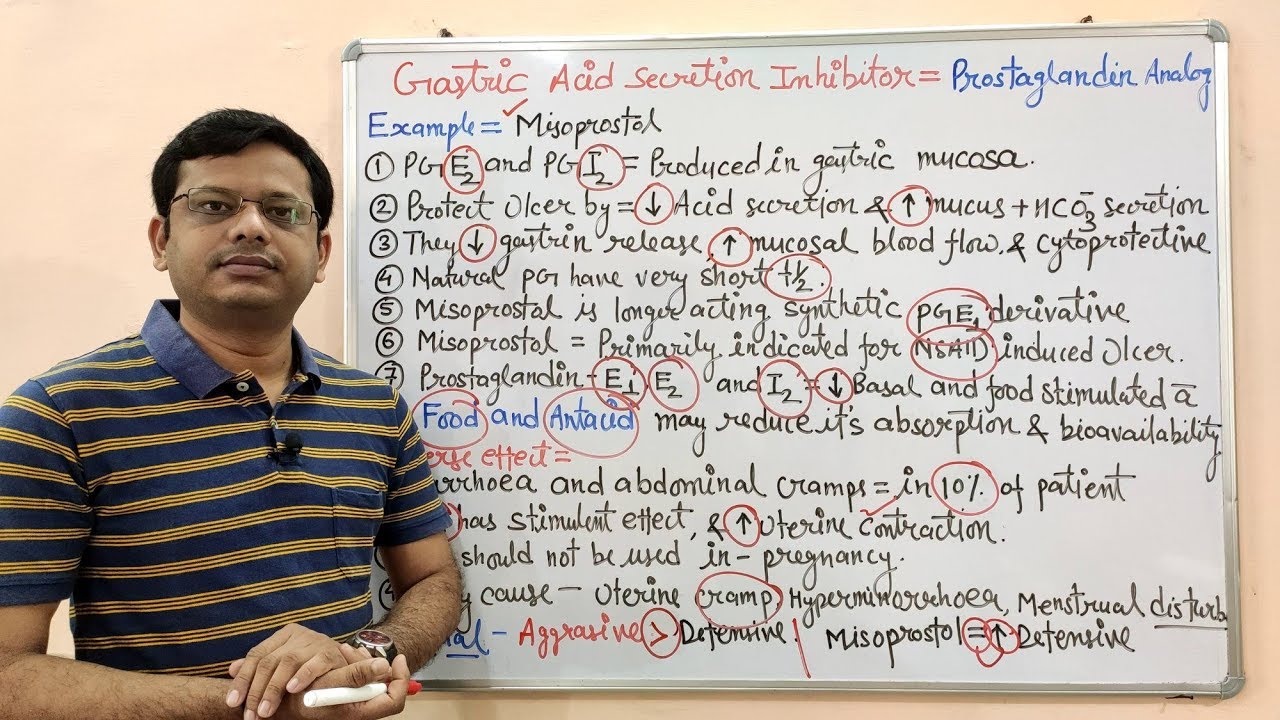 Gastric Acid Secretion Inhibitor = Prostaglandin Analog
Example = ✓ Misoprostol
① PGE₂ and PGI₂ = Produced in gastric mucosa.
② Protect Ulcer by = ↓ Acid secretion & ↑ mucus + HCO₃⁻ secretion
③ They ↓ gastrin release, ↑ mucosal blood flow. & cytoprotective
④ Natural PG have very short t½.
⑤ Misoprostol is longer acting synthetic PGE₁ derivative
⑥ Misoprostol = Primarily indicated for NSAID induced Ulcer.
⑦ Prostaglandin - E₁, E₂ and I₂ = ↓ Basal and food stimulated a̅
Food and Antacid may reduce it's absorption & bioavailability
erse effect =
rrhoea and abdominal cramps = in 10% of patient
has stimulent effect, & ↑ Uterine Contraction.
should not be used in - pregnancy.
④ cause - Uterine cramp, Hyperminorrhoea, Menstrual disturb
al - Aggrasive > Defensive. | Misoprostol = ↑ Defensive